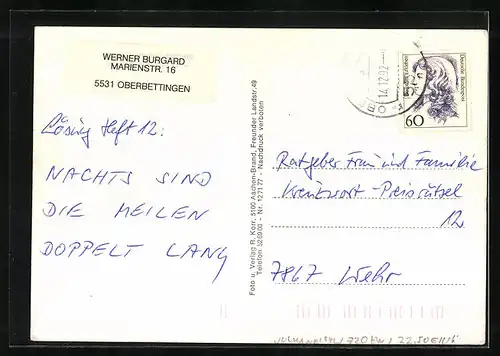 WERNER BURGARD
MARIENSTR. 16
5531 OBERBETTINGEN
Lösung Heft 12:
NACHTS SIND
DIE MEILEN
DOPPELT LANG
Foto u. Verlag R. Korr, 5100 Aachen-Brand, Freunder Landstr. 49
Telefon 528000 - Nr. 127177 - Nachdruck verboten
14.12.92
Deutsche Bundespost
60
Ratgeber Frau und Familie
Kreuzwort-Preisrätsel
12
7867 Wehr